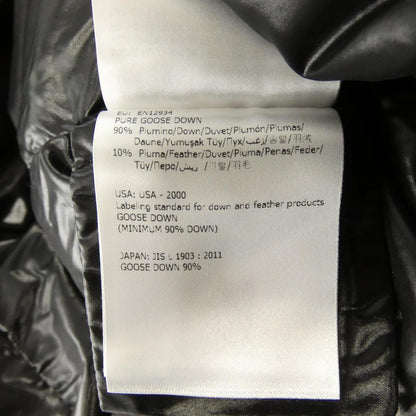 EU: EN12934
PURE GOOSE DOWN
90% Plumino/Down/Duvet/Plumón/Plumas/
Daune/Yumuşak Tüy/Пух/زغب/솜털/羽绒
10% Piuma/Feather/Duvet/Pluma/Penas/Feder/
Tüy/Перо/ريش/깃털/羽毛
USA: USA - 2000
Labeling standard for down and feather products
GOOSE DOWN
(MINIMUM 90% DOWN)
JAPAN: JIS L 1903 : 2011
GOOSE DOWN 90%